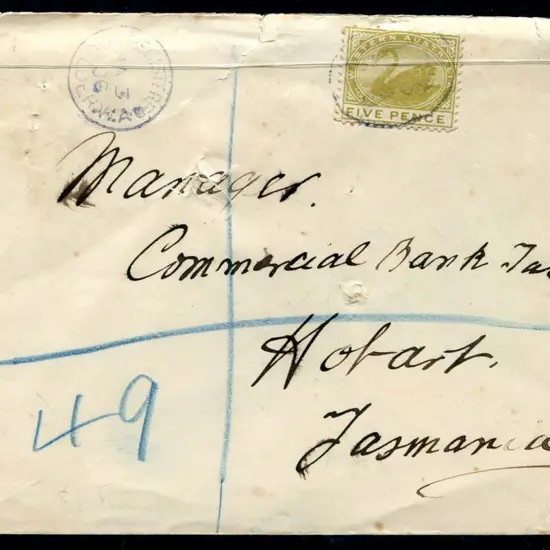 WESTERN AUSTRALIA
FIVE PENCE
Manager.
Commercial Bank Tas
Hobart.
Tasmania
49